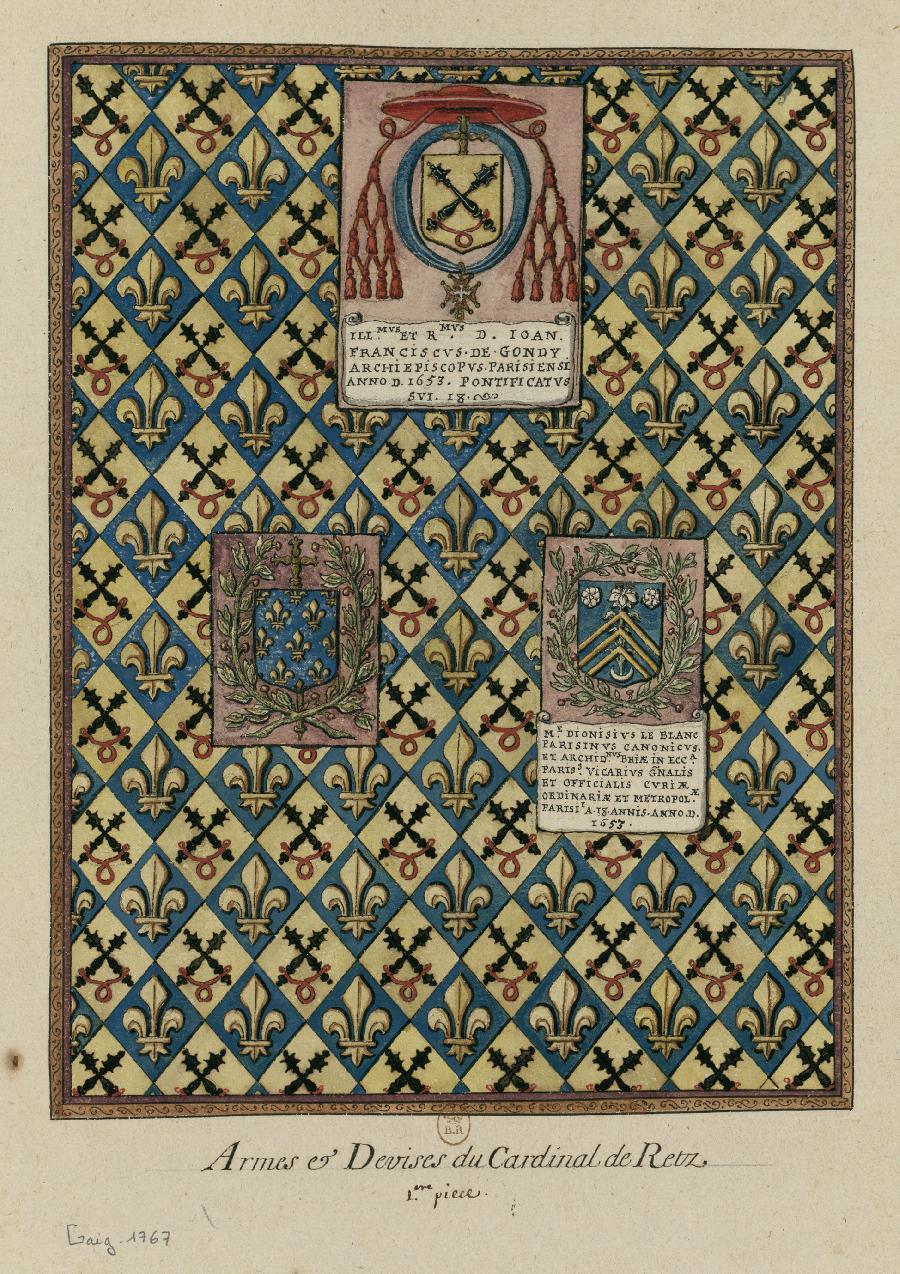 ILL.MVS ET R.MVS D. IOAN.
FRANCISCVS·DE·GONDY
ARCHIEPISCOPVS·PARISIENSI
ANNO D. 1653. PONTIFICATVS
SVI. 18.
M.R DIONISIVS LE BLANC
PARISINVS CANONICVS.
ET ARCHID.NVS BRIÆ IN ECC.A
PARIS.S VICARIVS GNALIS
ET OFFICIALIS CVRIÆ Æ
ORDINARIÆ ET METROPOL.
PARISI.E A·18·ANNIS·ANNO·D.
1653.
B.R
Armes & Devises du Cardinal de Retz.
1.ere piece.
Gaig. 1767